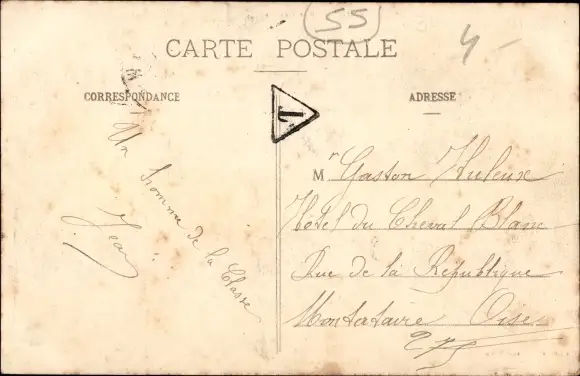 55
4-
CARTE POSTALE
CORRESPONDANCE
ADRESSE
T
Un homme de la Classe
Jean
Mr Gaston
Hôtel du Cheval Blanc
Rue de la République
Montataire Oise